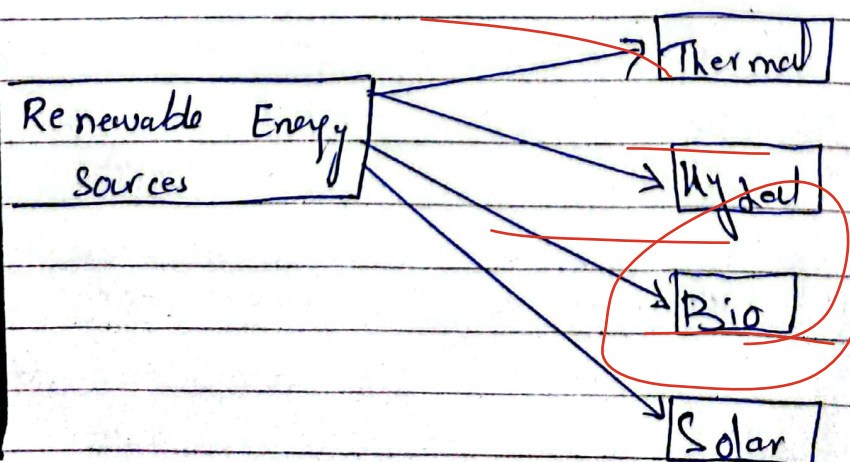 Renewable Energy
Sources
Thermal
Hydal
Bio
Solar